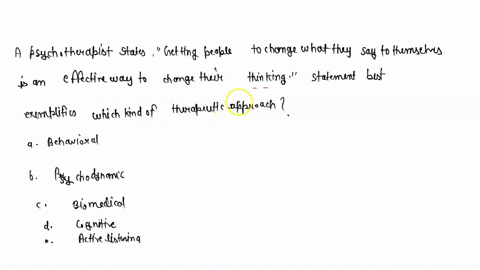 A psychotherapist states, "Getting people to change what they say to themselves
is an effective way to change their thinking." statement best
exemplifies which kind of therapeutic approach?
a. Behavioral
b. Psychodynamic
c. Biomedical
d. Cognitive
e. Active listening